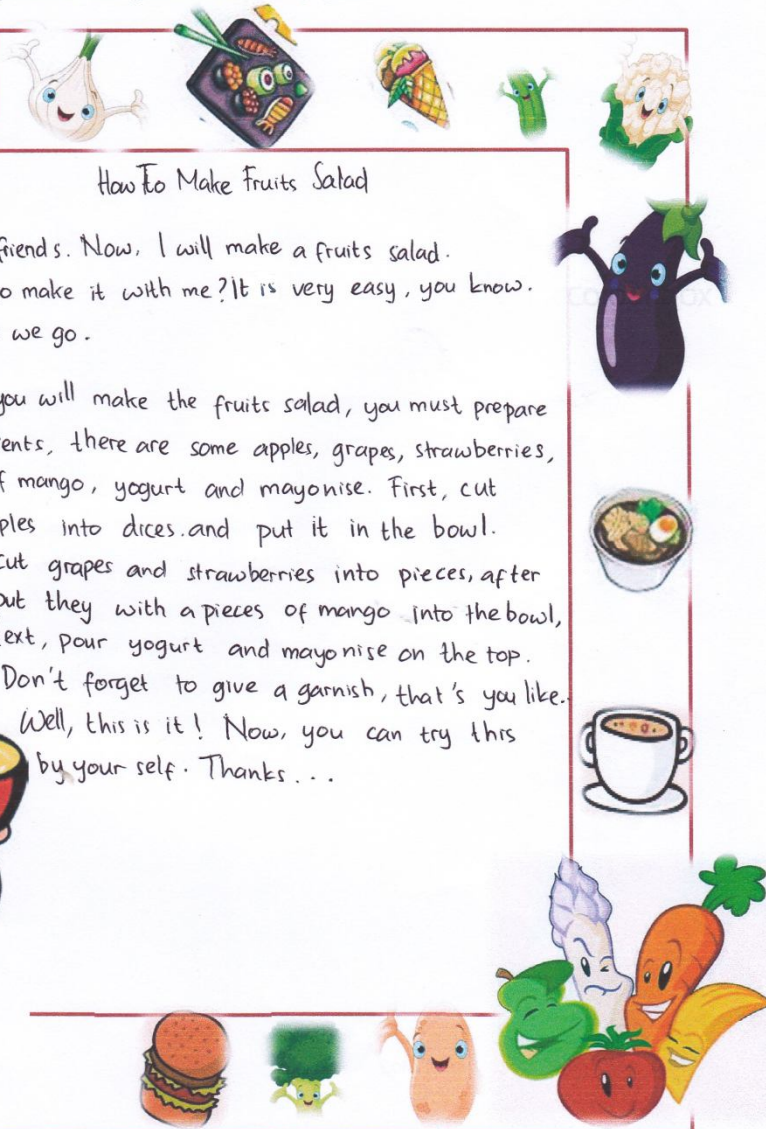 How To Make Fruits Salad
friends. Now, I will make a fruits salad.
o make it with me? It is very easy, you know.
we go.
you will make the fruits salad, you must prepare
ents, there are some apples, grapes, strawberries,
f mango, yogurt and mayonise. First, cut
ples into dices. and put it in the bowl.
cut grapes and strawberries into pieces, after
put they with a pieces of mango into the bowl,
ext, pour yogurt and mayonise on the top.
Don't forget to give a garnish, that's you like.
Well, this is it! Now, you can try this
by your self. Thanks...